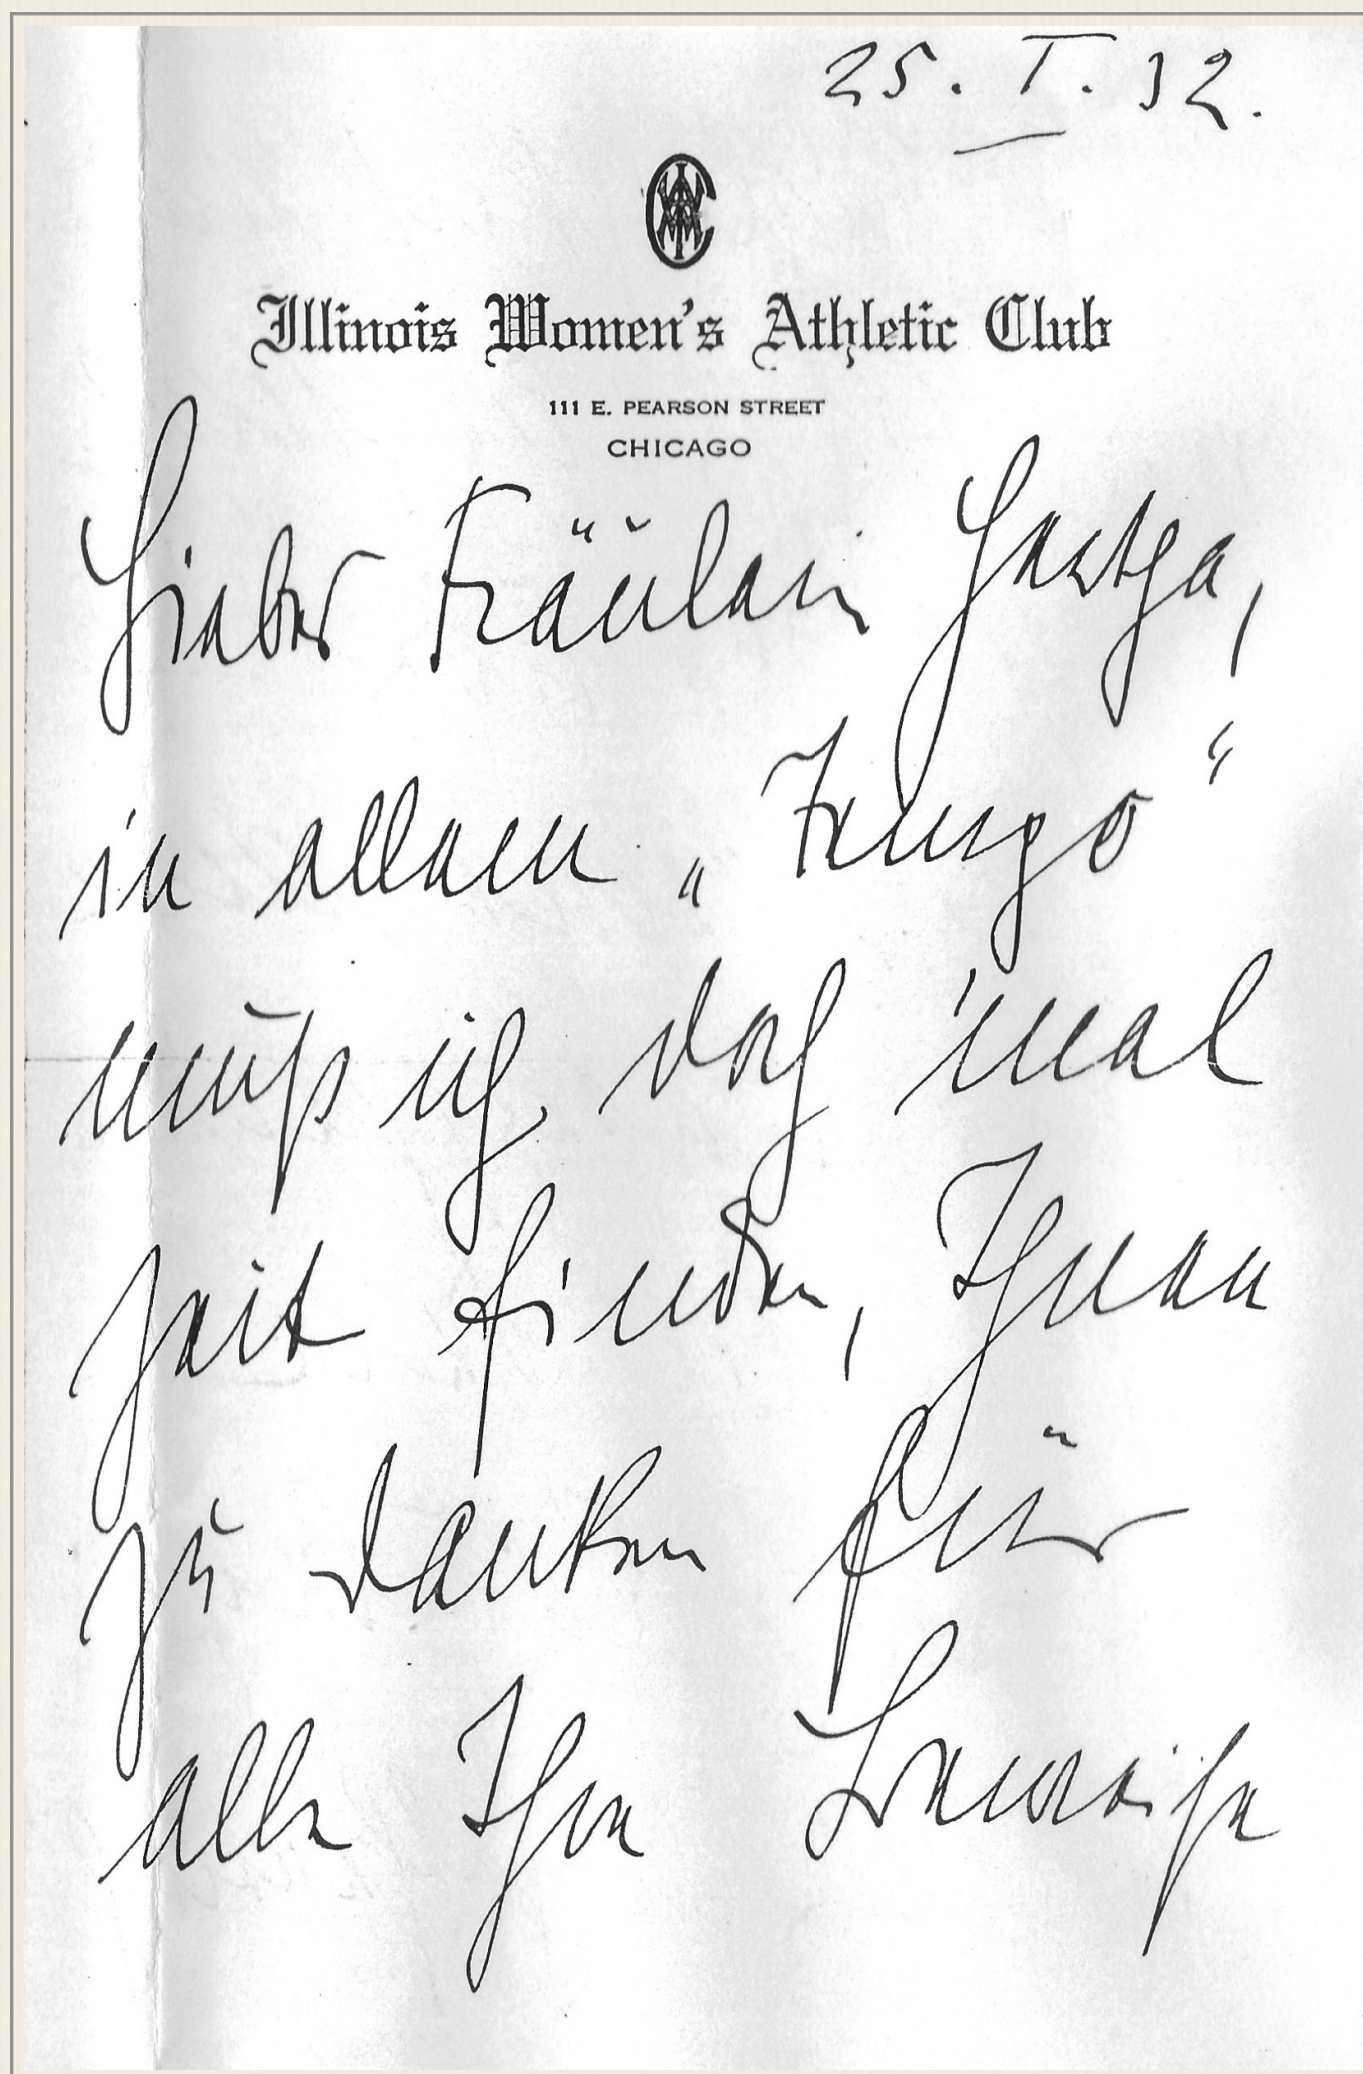 25. I. 32.
Illinois Women's Athletic Club
111 E. PEARSON STREET
CHICAGO
Liebes Fräulein
in allem „Tempo“
muß ich doch 'mal
Zeit finden, Ihnen
zu danken für
alle Ihre